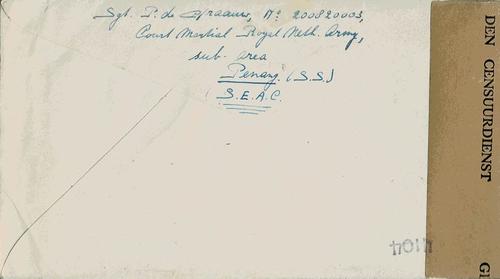 Sgt. P. de Graauw, No 200820003,
Court Martial Royal Neth. Army,
sub. area
Penang. (S.S.)
(S.E.A.C.
DEN CENSUURDIENST
GE
41044